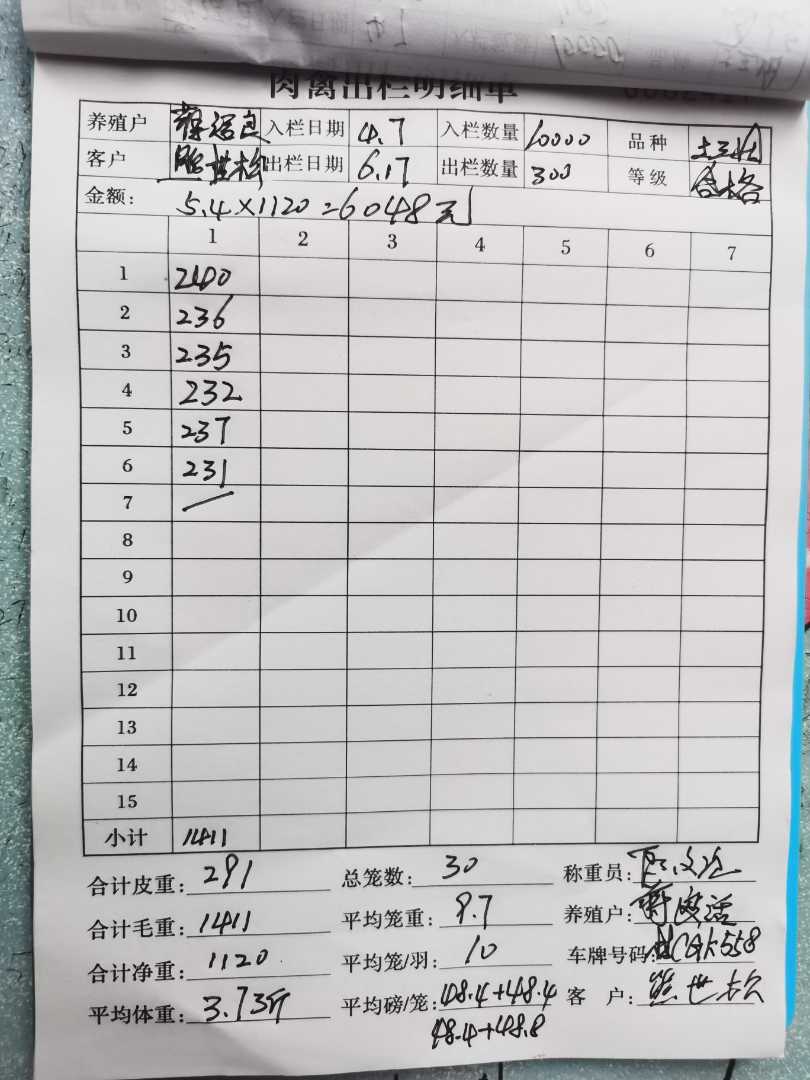 肉禽出栏明细单
养殖户 入栏日期 4.7 入栏数量 10000 品种
客户 熊世松 出栏日期 6.17 出栏数量 300 等级 合格
金额: 5.4×1120=6048元
1 2 3 4 5 6 7
1 240
2 236
3 235
4 232
5 237
6 231
7 —
8
9
10
11
12
13
14
15
小计 1411
合计皮重: 291 总笼数: 30 称重员:
合计毛重: 1411 平均笼重: 9.7 养殖户:
合计净重: 1120 平均笼/羽: 10 车牌号码: CGK558
平均体重: 3.73斤 平均磅/笼: 48.4+48.4 客户: 熊世松
48.4+48.8